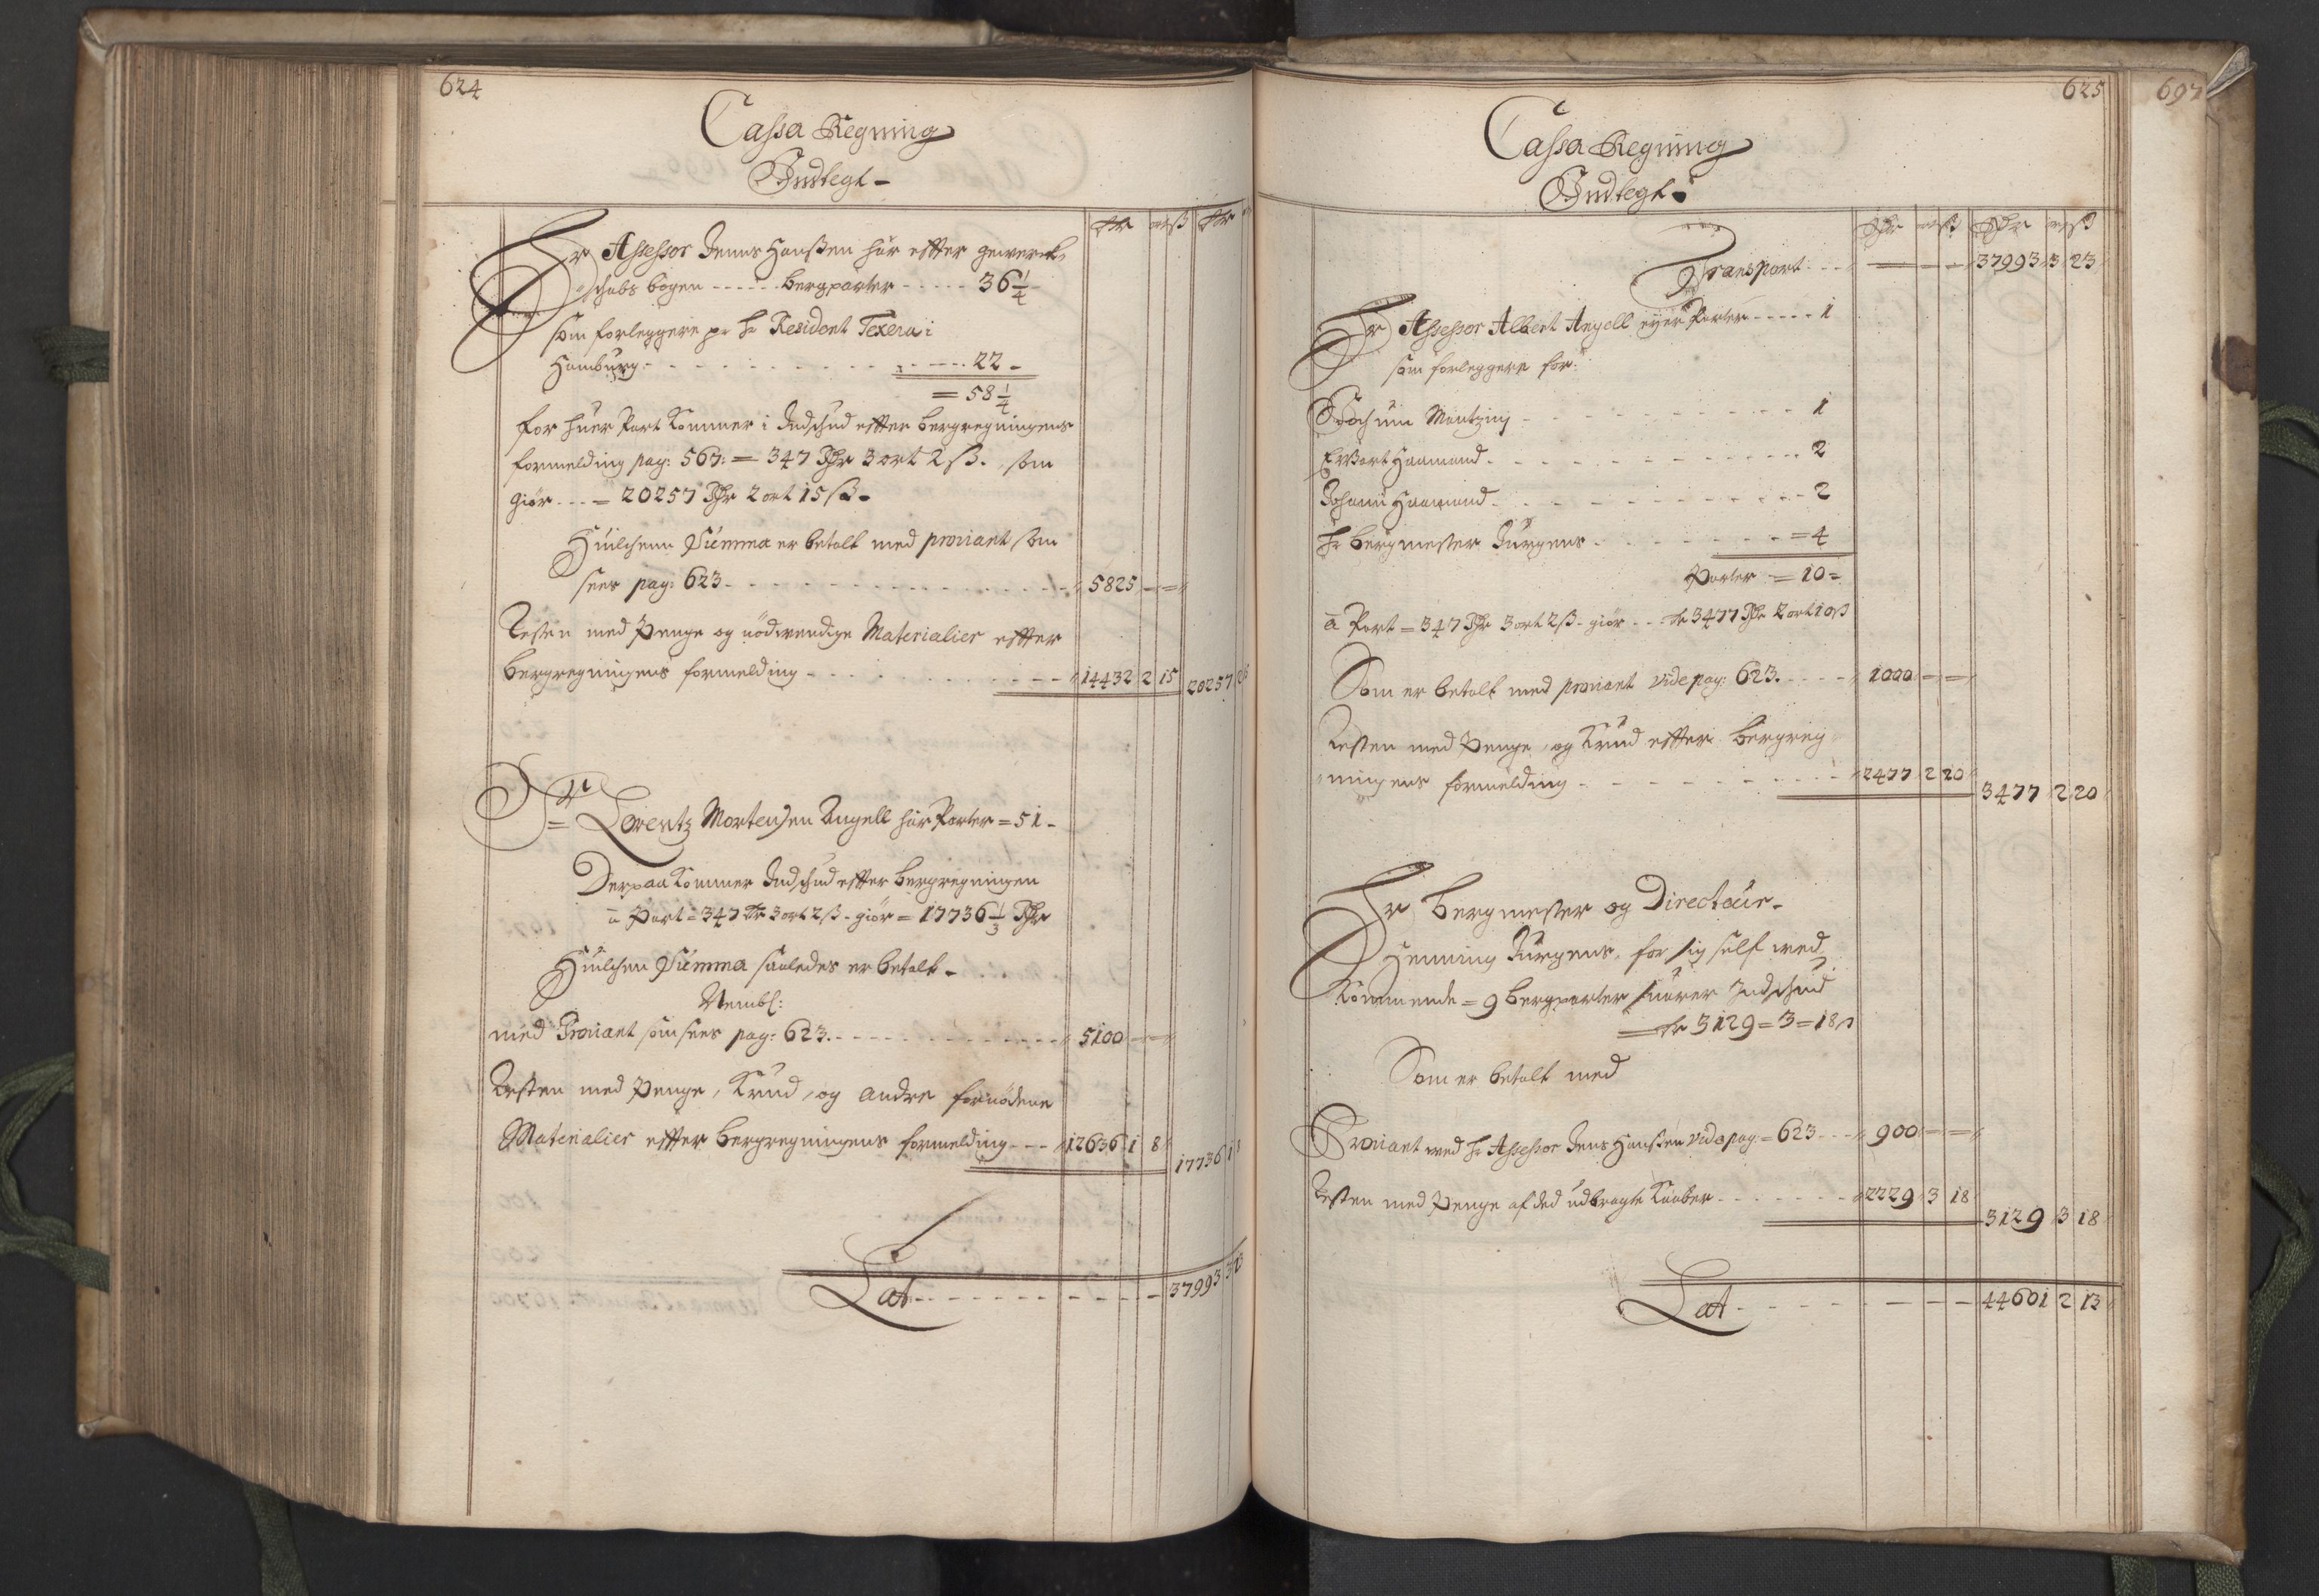 624
Cassa Regning
Indtegt -
Rdr ort ß Rdr
Hr Assessor Jenns Hanßen har effter gewerck,
schabs bogen - - - - - - bergparter - - - - - 36 1/4
som forleggere pr Hr Resident Texera i
Hamburg - - - - - - - - - - 22 -
= 58 1/4
for huer Part kommer i Indschud effter bergregningens
formelding pag: 567: = 347 Rdr 3 ort 2 ß. som
giør - - - = 20257 Rdr 2 ort 15 ß -
Huilchenn Summa er betalt med proviant som
sees pag: 623 - - - - - - - - - - 5825 - =
Resten med Penge og nødwendige Materialier effter
bergregningens formelding - - - - - - - - 14432 2 15 20257 2
Hr
= Lorentz Mortensen Angell har Parter = 51 -
Derpaa kommer Indschud effter bergregningen
a Part = 347 Rdr 3 ort 2 ß - giør = 17736 1/3 Rdr
Huilchen Summa saaledes er betalt -
Nembl:
med Proviant som sees pag: 623. - - - - - - - - 5100 - =
Resten med Penge, Krud, og andre fornødene
Materialier effter bergregningens formelding - - - 12636 1 8 17736 1
Lat - - - - - - - - - 37993 3 23
625
697
Cassa Regning
Indtegt
Rdr ort ß Rdr ort ß
Transport - - - 37993 3 23
Hr Assessor Albert Angell eyer Parter - - - - - 1
som forleggere for:
Jochum Mentzing - - - - - - - - - - 1
Evert Haamand - - - - - - - - - - 2
Johann Haamand - - - - - - - - - - 2
Hr bergmester Jürgens - - - - - - - - = 4
Parter = 10 =
a Part = 347 Rdr 3 ort 2 ß - giør - - Rdr 3477 Rdr 2 ort 20 ß
Som er betalt med proviant vide pag: 623. - - - - 1000 - =
Resten med Penge, og Krud effter bergreg
ningens formelding - - - - - - - - - 2477 2 20
3477 2 20
Hr bergmester og Directeur -
Henning Jürgens, for sig self wed
kommende = 9 bergparter suarer Indschud
= Rdr 3129 = 3 = 18 ß
Som er betalt med
Proviant wed Hr Assessor Jens Hanßen vide pag: = 623 - - - 900 - =
Resten med Penge af ded udbragte Kaaber - - - - - - - 2229 3 18
3129 3 18
Lat - - - - - - - - 44601 2 13